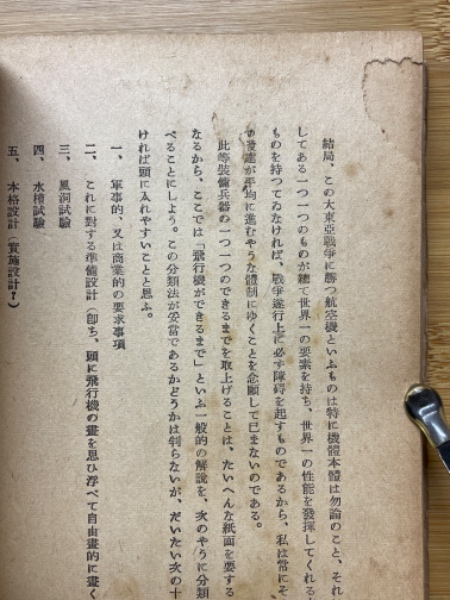 結局、この大東亞戰爭に勝つ航空機といふものは特に機體本體は勿論のこと、それ
してある一つ一つのものが總て世界一の要素を持ち、世界一の性能を發揮してくれる
ものを持つてゐなければ、戰爭遂行上に必ず障碍を起すものであるから、私は常にそ
の發達が平均に進むやうな體制にゆくことを念願して已まないのである。
此等裝備兵器の一つ一つのできるまでを取上げることは、たいへんな紙面を要する
なるから、ここでは「飛行機ができるまで」といふ一般的の解說を、次のやうに分類
べることにしよう。この分類法が妥當であるかどうかは判らないが、だいたい次の十
ければ頭に入れやすいことと思ふ。
一、軍事的、又は商業的の要求事項
二、これに對する準備設計（卽ち、頭に飛行機の畫を思ひ浮べて自由畫的に畫く
三、風洞試驗
四、水槽試驗
五、本格設計（實施設計）